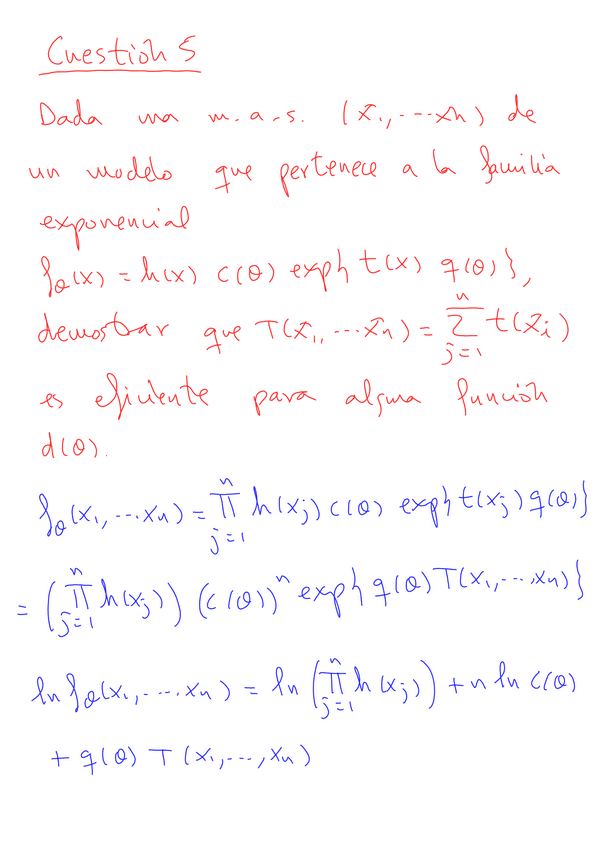 Cuestión 5
Dada una m.a.s. (X₁, ... Xn) de
un modelo que pertenece a la familia
exponencial
f_θ(x) = h(x) c(θ) exp{ t(x) q(θ)},
demostrar que T(X₁, ... Xn) = ∑_{j=1}^{n} t(X_i)
es eficiente para alguna función
d(θ).
f_θ(x₁, ... xn) = ∏_{j=1}^{n} h(x_j) c(θ) exp{ t(x_j) q(θ)}
= (∏_{j=1}^{n} h(x_j)) (c(θ))ⁿ exp{ q(θ) T(x₁, ..., xn)}
ln f_θ(x₁, ... xn) = ln (∏_{j=1}^{n} h(x_j)) + n ln c(θ)
+ q(θ) T(x₁, ..., xn)